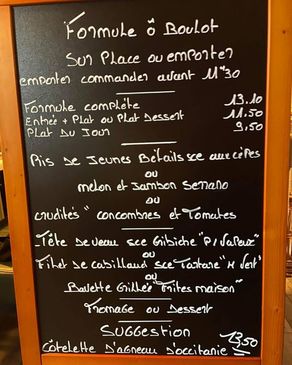 Formule ô Boulot
Sur Place ou emporter
emporter commander avant 11H30
Formule complète 13.10
Entrée + Plat ou Plat Dessert 11.50
Plat Du Jour 9,50
Ris de Jeunes Bétails sce aux cèpes
ou
melon et Jambon Serrano
ou
crudités "concombres et Tomates
Tête de veau sce Gribiche "P/Vapeur"
ou
Filet de cabillaud sce Tartare "H Vert"
ou
Bavette Grillée "Frites maison"
Fromage ou Dessert
Suggestion
Côtelette D'agneau D'occitanie 13,50